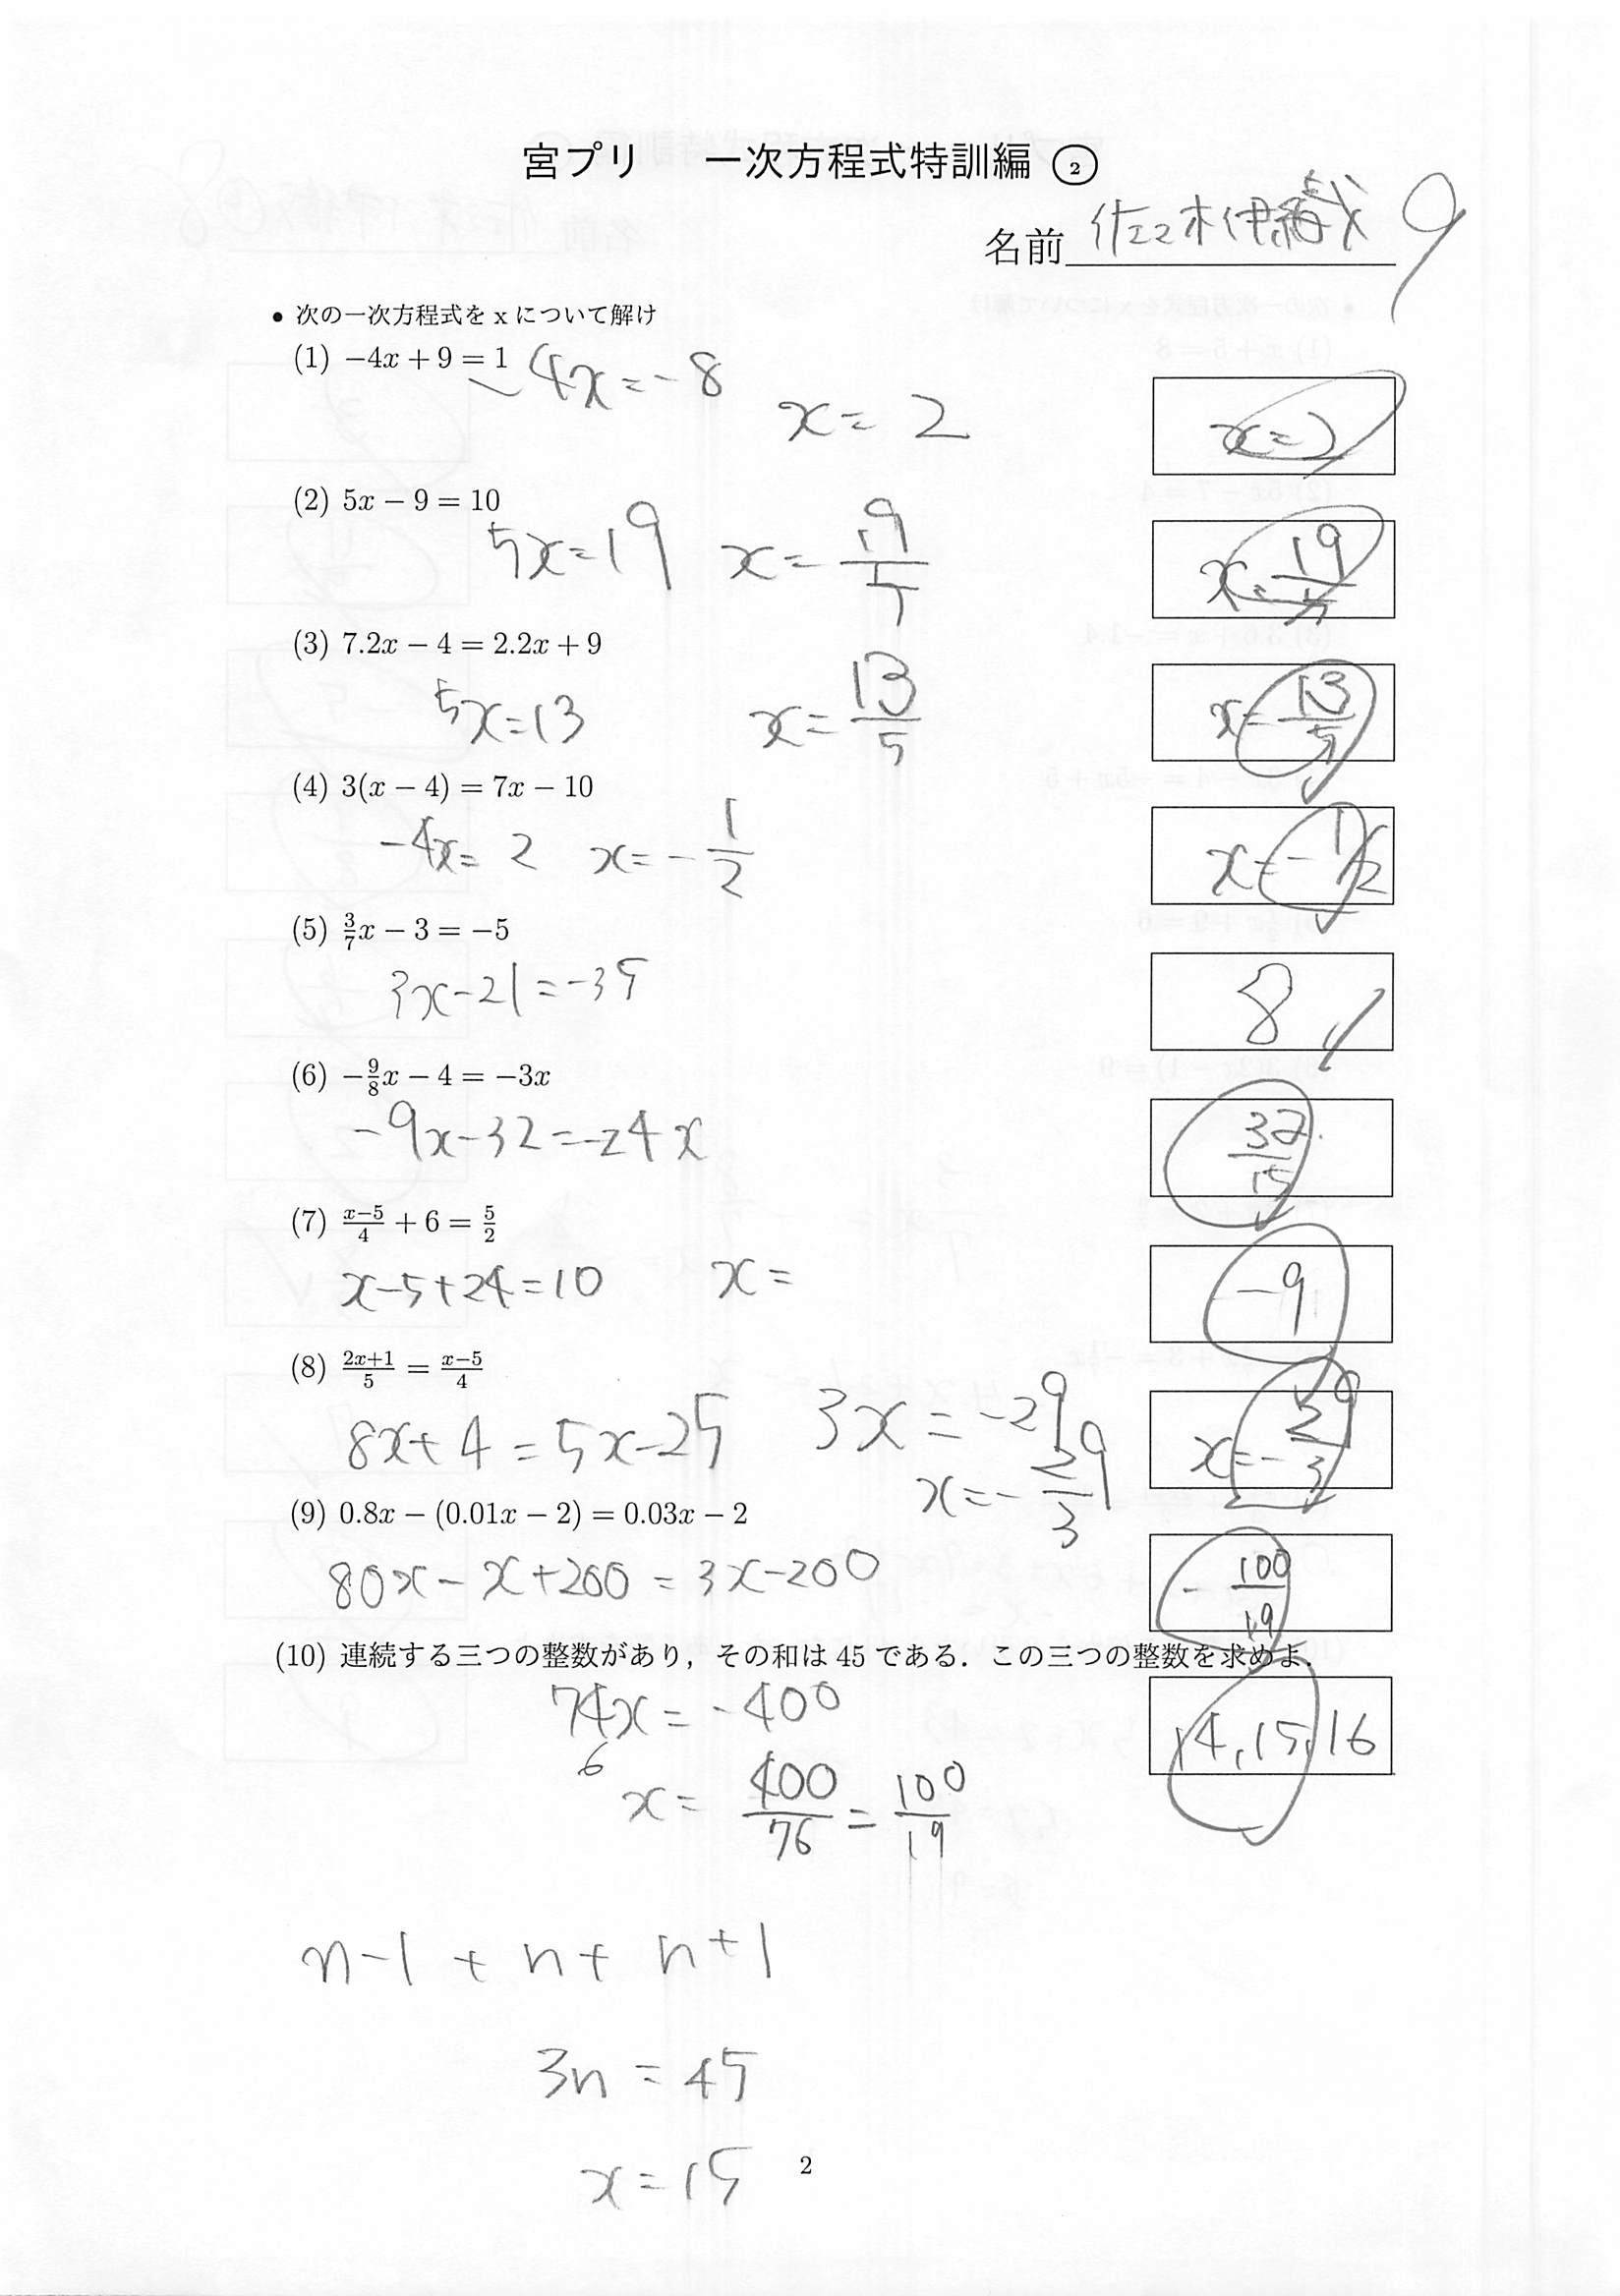 宮プリ 一次方程式特訓編 ②
名前 佐々木伊織 9
• 次の一次方程式を x について解け
(1) −4x + 9 = 1
-4x=-8 x=2
x=2
(2) 5x − 9 = 10
5x=19 x=19/5
x=19/5
(3) 7.2x − 4 = 2.2x + 9
5x=13 x=13/5
x=13/5
(4) 3(x − 4) = 7x − 10
-4x=2 x=-1/2
x=-1/2
(5) 3/7x − 3 = −5
3x-21=-35
8
(6) −9/8x − 4 = −3x
-9x-32=-24x
32/15
(7) x−5/4 + 6 = 5/2
x-5+24=10 x=
-9
(8) 2x+1/5 = x−5/4
8x+4=5x-25 3x=-29
x=-29/3
x=-29/3
(9) 0.8x − (0.01x − 2) = 0.03x − 2
80x-x+200=3x-200
-100/19
(10) 連続する三つの整数があり，その和は 45 である．この三つの整数を求めよ．
74x=-400
6
x=400/76=100/19
14,15,16
n-1+n+n+1
3n=45
x=15
2